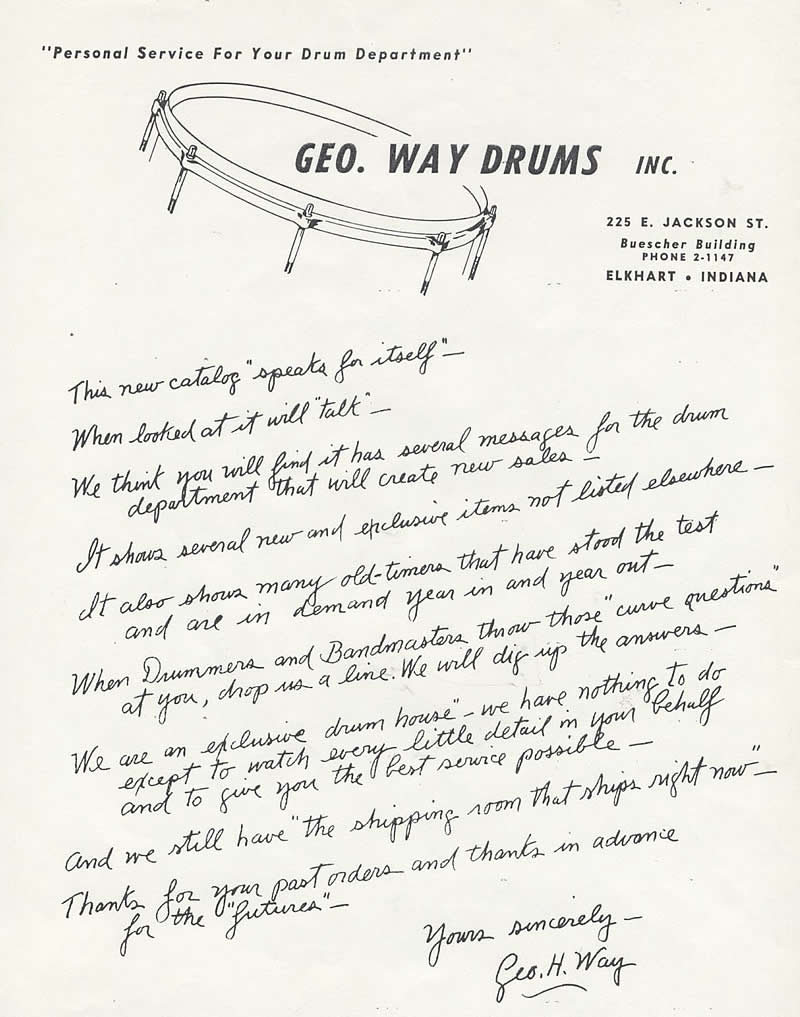 "Personal Service For Your Drum Department"
GEO. WAY DRUMS INC.
225 E. JACKSON ST.
Buescher Building
PHONE 2-1147
ELKHART • INDIANA
This new catalog "speaks for itself" —
When looked at it will "talk" —
We think you will find it has several messages for the drum
department that will create new sales —
It shows several new and exclusive items not listed elsewhere —
It also shows many old-timers that have stood the test
and are in demand year in and year out —
When Drummers and Bandmasters throw those "curve questions"
at you, drop us a line. We will dig up the answers —
We are an exclusive drum house" – we have nothing to do
except to watch every little detail in your behalf
and to give you the best service possible —
And we still have "the shipping room that ships right now" —
Thanks for your past orders and thanks in advance
for the "futures" —
Yours sincerely —
Geo. H. Way